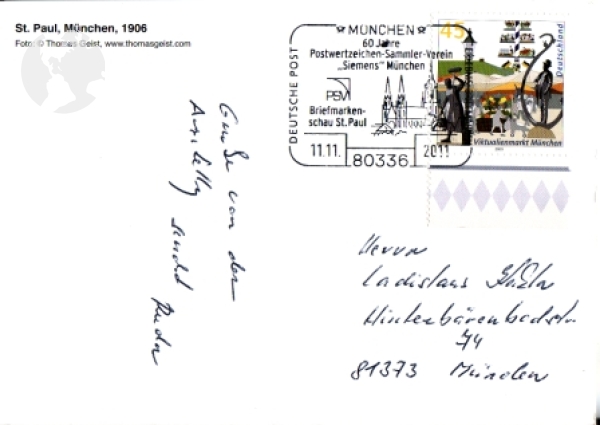 St. Paul, München, 1906
Foto: © Thomas Geist, www.thomasgeist.com
DEUTSCHE POST
MÜNCHEN
60 Jahre
Postwertzeichen-Sammler-Verein
„Siemens" München
PSV
Briefmarken-
schau St. Paul
11.11. 2011
80336
45
Deutschland
Viktualienmarkt München
Grüße von der
sendet
Herrn
Ladislaus
Hinterbärenbadstr.
74
81373 München